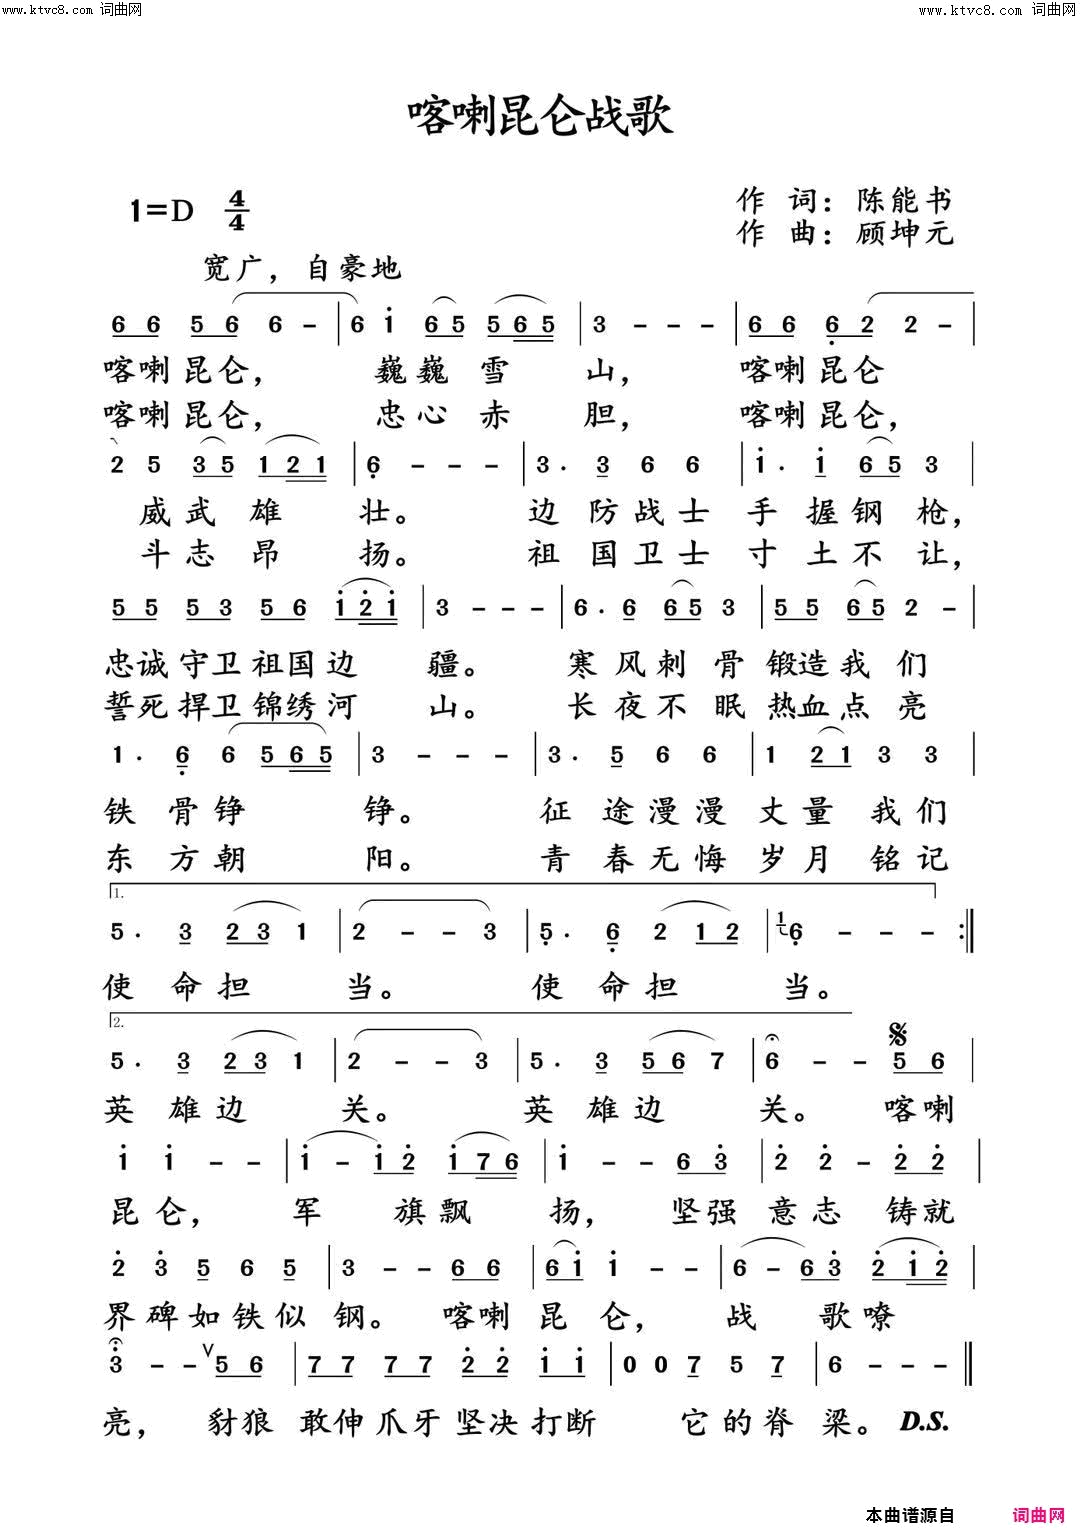 www.ktvc8.com 词曲网 www.ktvc8.com 词曲网
喀喇昆仑战歌
1=D 4/4
作 词：陈能书
作 曲：顾坤元
宽广，自豪地
6 6 5 6 6 - | 6 1 6 5 5 6 5 | 3 - - - | 6 6 6 2 2 - |
喀喇昆仑， 巍巍 雪 山， 喀喇昆仑
喀喇昆仑， 忠心 赤 胆， 喀喇昆仑，
2 5 3 5 1 2 1 | 6 - - - | 3 . 3 6 6 | 1 . 1 6 5 3 |
威武 雄 壮。 边 防战士 手 握钢 枪，
斗志 昂 扬。 祖 国卫士 寸 土不 让，
5 5 5 3 5 6 1 2 1 | 3 - - - | 6 . 6 6 5 3 | 5 5 6 5 2 - |
忠诚守卫祖国边 疆。 寒 风刺 骨 锻造我 们
誓死捍卫锦绣河 山。 长 夜不 眠 热血点 亮
1 . 6 6 5 6 5 | 3 - - - | 3 . 5 6 6 | 1 2 1 3 3 |
铁 骨铮 铮。 征 途漫漫 丈量 我们
东 方朝 阳。 青 春无悔 岁月 铭记
1.
5 . 3 2 3 1 | 2 - - 3 | 5 . 6 2 1 2 | 1 6 - - - :|
使 命担 当。 使 命担 当。
2.
5 . 3 2 3 1 | 2 - - 3 | 5 . 3 5 6 7 | 6 - - 5 6 |
英 雄边 关。 英 雄边 关。 喀喇
1 1 - - | 1 - 1 2 1 7 6 | 1 - - 6 3 | 2 2 - 2 2 |
昆仑， 军 旗飘 扬， 坚强 意志 铸就
2 3 5 6 5 | 3 - - 6 6 | 6 1 1 - - | 6 - 6 3 2 1 2 |
界碑如铁似 钢。 喀喇 昆 仑， 战 歌嘹
3 - - V 5 6 | 7 7 7 7 2 2 1 1 | 0 0 7 5 7 | 6 - - - ||
亮， 豺狼 敢伸爪牙坚决打断 它的脊 梁。 D.S.
本曲谱源自 词曲网